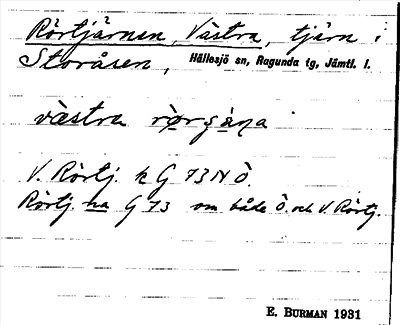 Rörtjärnen, Västra, tjärn i
Storåsen, Hällesjö sn, Ragunda tg, Jämtl. l.
västra
V. Rörtj. k G 73 N Ö.
Rörtj. ha G 73 om både Ö. och V. Rörtj.
E. BURMAN 1931